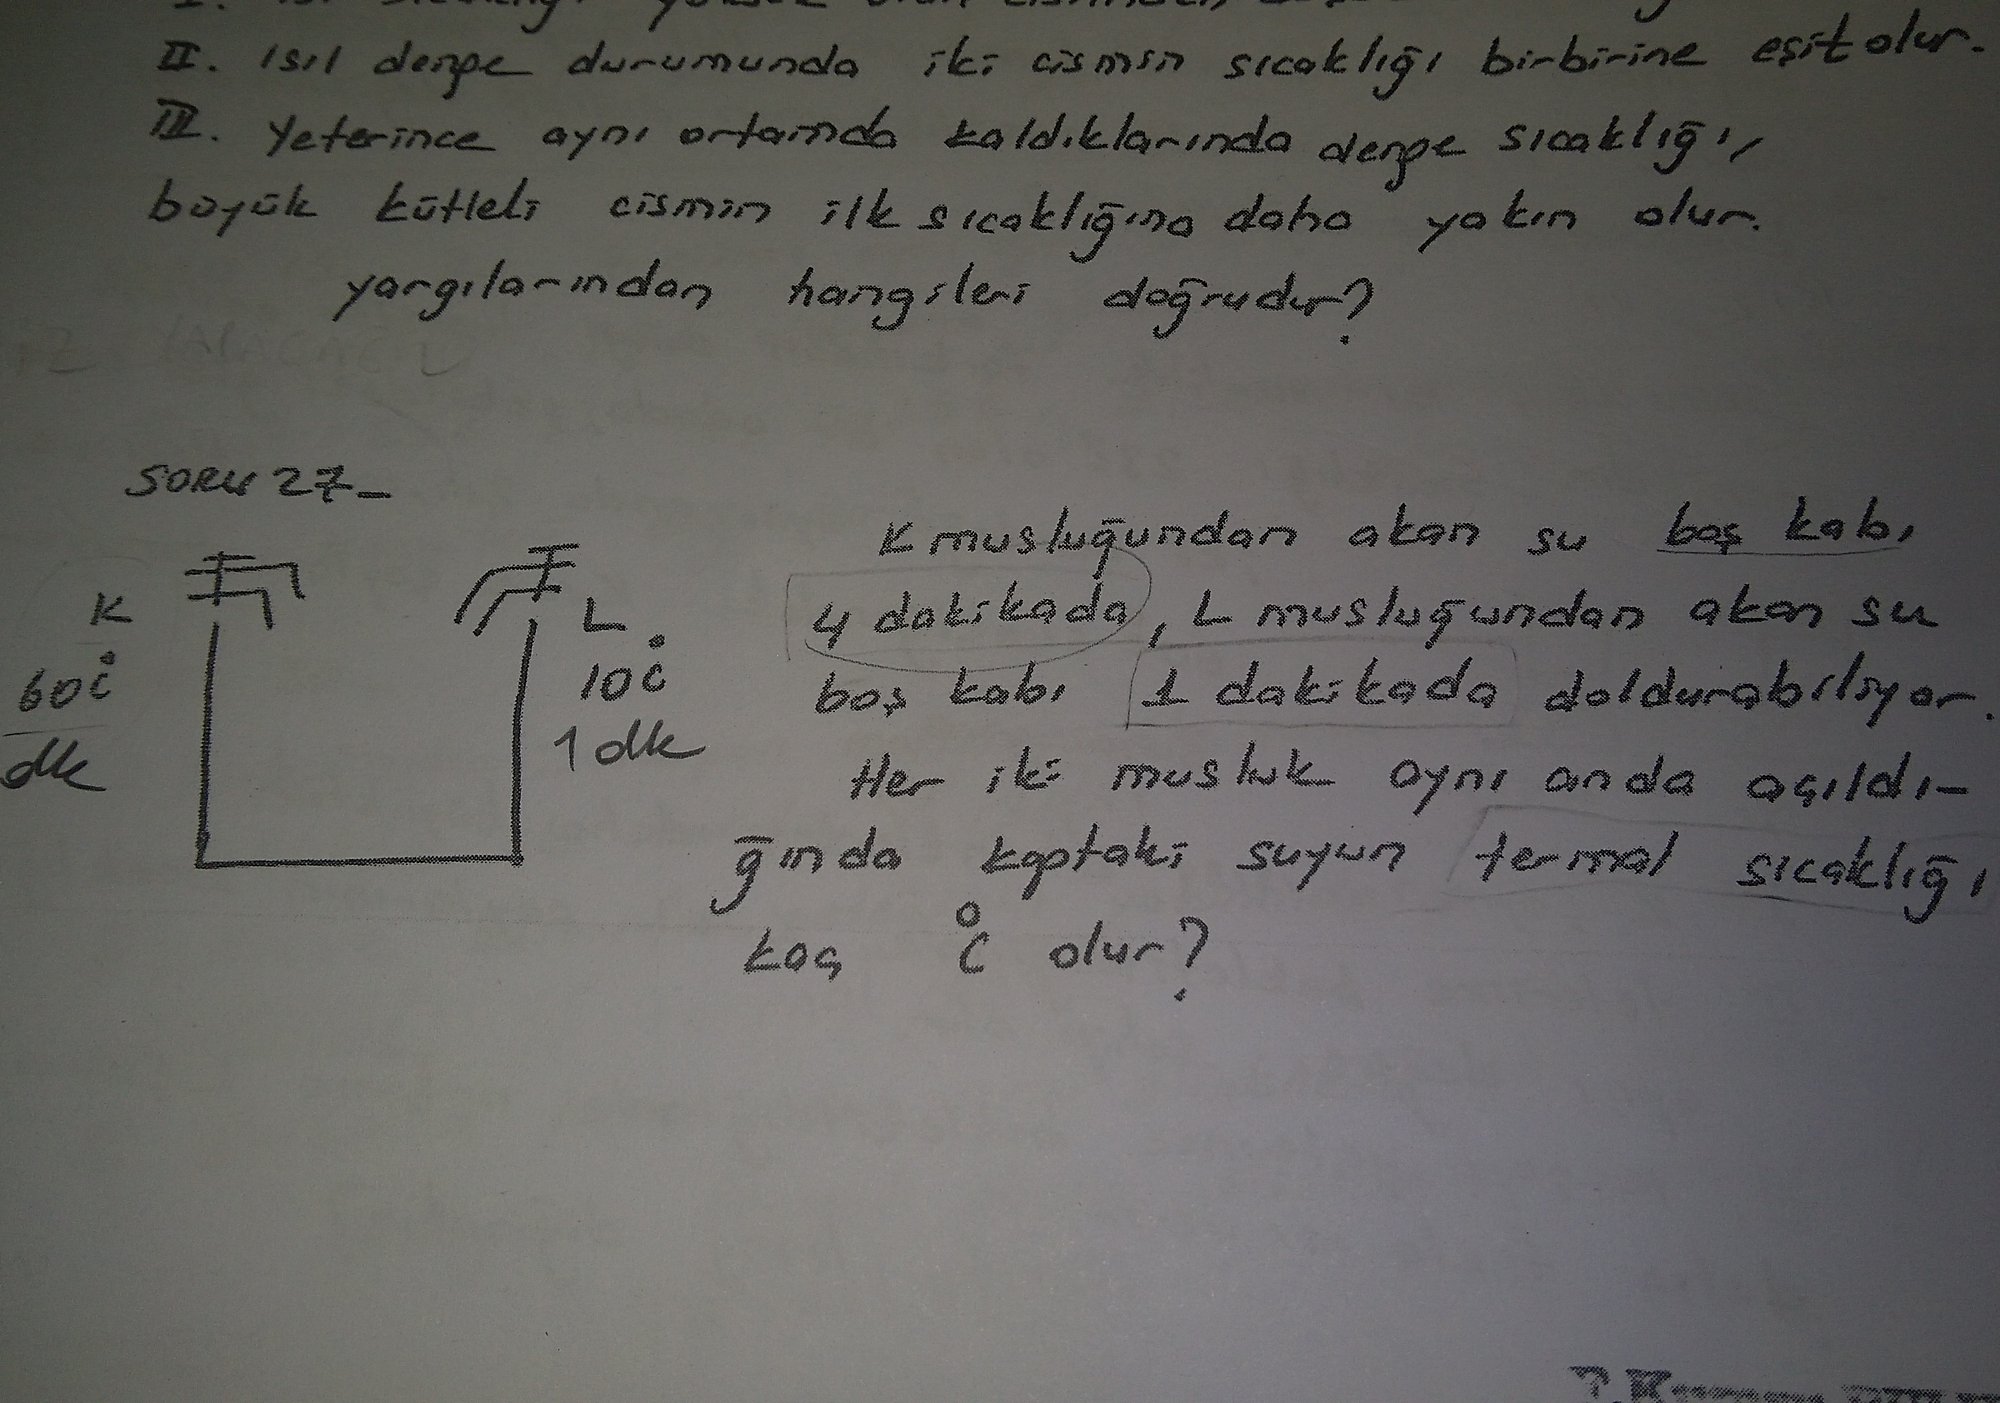 II. Isıl denge durumunda iki cismin sıcaklığı birbirine eşit olur.
III. Yeterince aynı ortamda kaldıklarında denge sıcaklığı,
büyük kütleli cismin ilk sıcaklığına daha yakın olur.
yargılarından hangileri doğrudur?
SORU 27_
K musluğundan akan su boş kabı
4 dakikada, L musluğundan akan su
boş kabı 1 dakikada doldurabiliyor.
Her iki musluk aynı anda açıldı-
ğında kaptaki suyun termal sıcaklığı
kaç °C olur?
K
60°C
dk
L
10°C
1 dk